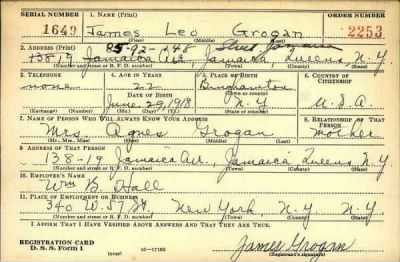 SERIAL NUMBER 1. NAME (Print) ORDER NUMBER
1643 James Leo Grogan 2253
(First) (Middle) (Last)
85-92-148 Street Jamaica
2. ADDRESS (Print)
Jamaica Ave., Jamaica, Queens, N.Y.
(Number and street or R. F. D. number) (Town) (County) (State)
3. TELEPHONE 4. AGE IN YEARS 5. PLACE OF BIRTH 6. COUNTRY OF CITIZENSHIP
none 22 Binghamton
DATE OF BIRTH (Town or county)
June 29, 1918 N.Y. U.S.A.
(Exchange) (Number) (Mo.) (Day) (Yr.) (State or country)
7. NAME OF PERSON WHO WILL ALWAYS KNOW YOUR ADDRESS 8. RELATIONSHIP OF THAT PERSON
Mrs. Agnes Grogan mother
(Mr., Mrs., Miss) (First) (Middle) (Last)
9. ADDRESS OF THAT PERSON
138-19 Jamaica Ave., Jamaica Queens N.Y.
(Number and street or R. F. D. number) (Town) (County) (State)
10. EMPLOYER'S NAME
Wm B. Hall
11. PLACE OF EMPLOYMENT OR BUSINESS
340 W. 57 St. New York, N.Y. N.Y.
(Number and street or R. F. D. number) (Town) (County) (State)
I AFFIRM THAT I HAVE VERIFIED ABOVE ANSWERS AND THAT THEY ARE TRUE.
REGISTRATION CARD
D. S. S. Form 1 16-17105 James Grogan
(Registrant's signature)